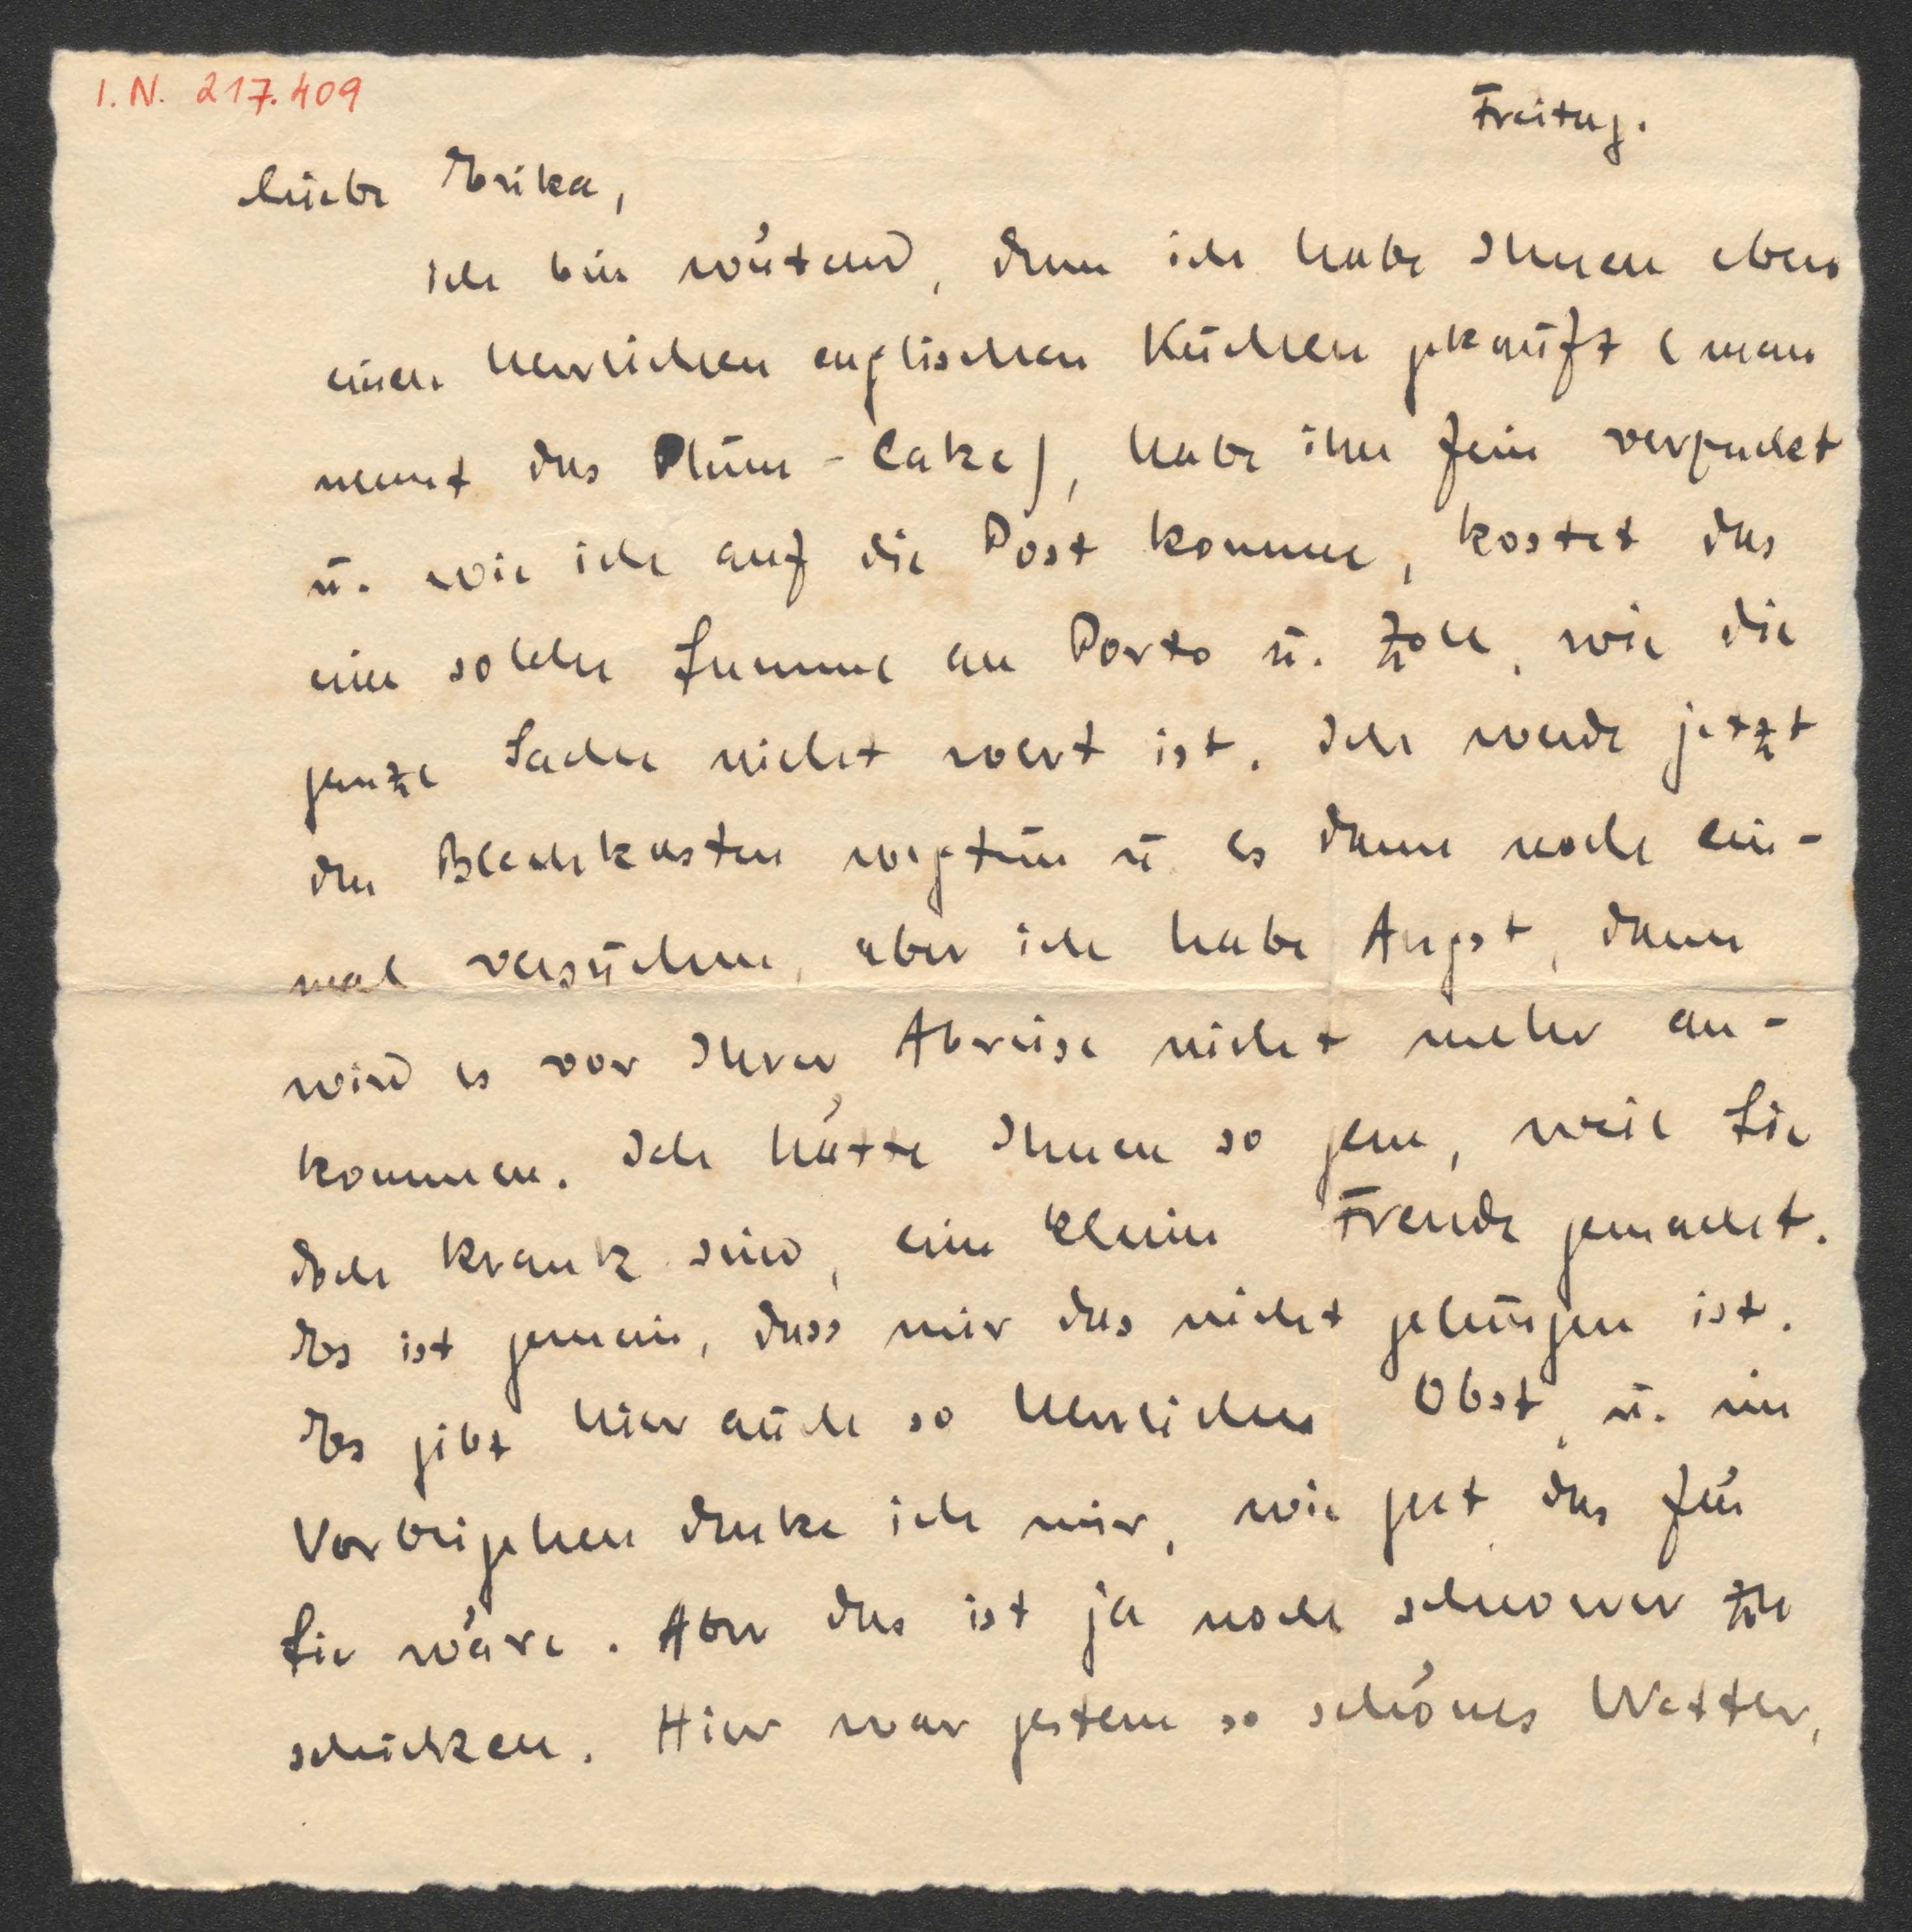 I.N. 217.409
Freitag.
Liebe Erika,
Ich bin wütend, denn ich habe Ihnen eben
einen herrlichen englischen Kuchen gekauft (man
nennt das Plum-Cake), habe ihn fein verpackt
u. wie ich auf die Post komme, kostet das
eine solche Summe an Porto u. Zoll, wie die
ganze Sache nicht wert ist. Ich werde jetzt
den Blechkasten wegtun u es dann noch ein-
mal versuchen, aber ich habe Angst, dann
wird es vor Ihrer Abreise nicht mehr an-
kommen. Ich hätte Ihnen so gern, weil Sie
doch krank sind, eine kleine Freude gemacht.
Es ist gemein, dass mir das nicht gelungen ist.
Es gibt hier auch so herrliches Obst, u. im
Vorbeigehen denke ich mir, wie gut das für
Sie wäre. Aber das ist ja noch schwerer zu
schicken. Hier war gestern so schönes Wetter,